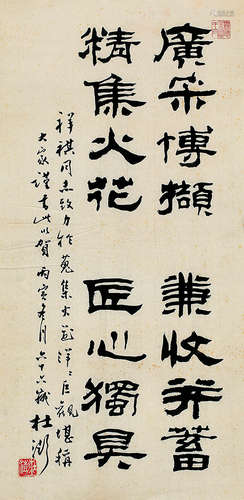 廣采博擷 兼收并蓄
精集火花 匠心獨具
祥祺同志致力於蒐集火花洋洋巨觀堪稱
大家謹書此以賀 丙寅冬月 六十六歲 杜澎